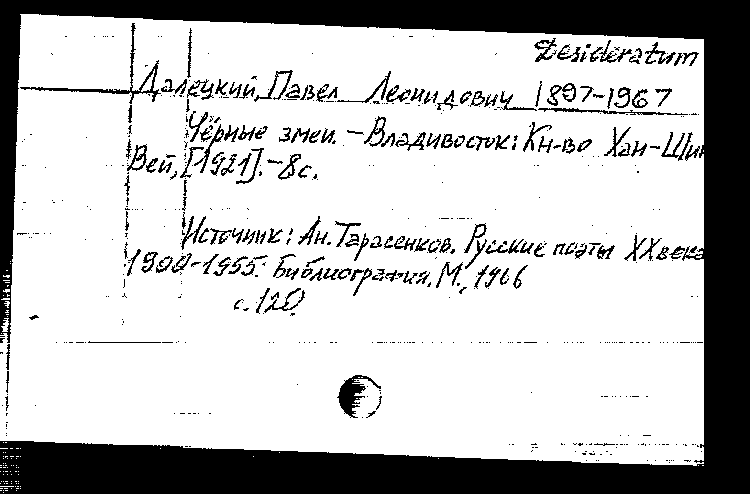 Desideratum
Далецкий, Павел Леонидович 1897-1967
Чёрные змеи. - Владивосток: Кн-во Хан-Шин
Вей, [1921]. - 8с.
Источник: Ан. Тарасенков. Русские поэты XX века
1900-1955. Библиография. М., 1966
с. 120